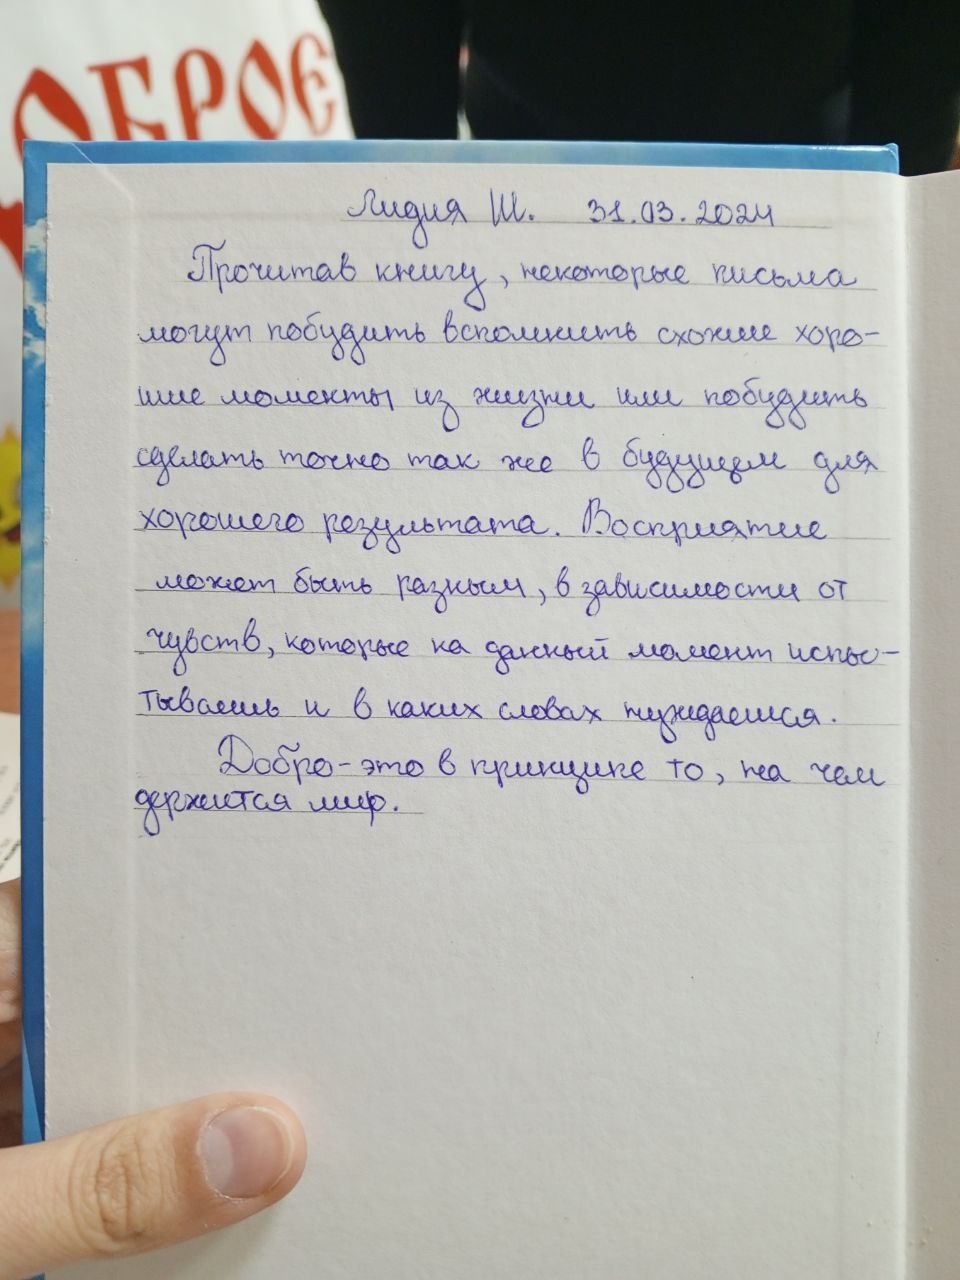 ОБРОЕ
Лидия Ш. 31.03.2024
Прочитав книгу, некоторые письма
могут побудить вспомнить схожие хоро-
шие моменты из жизни или побудить
сделать точно так же в будущем для
хорошего результата. Восприятие
может быть разным, в зависимости от
чувств, которые на данный момент испы-
тываешь и в каких словах нуждаешься.
Добро-это в принципе то, на чем
держится мир.